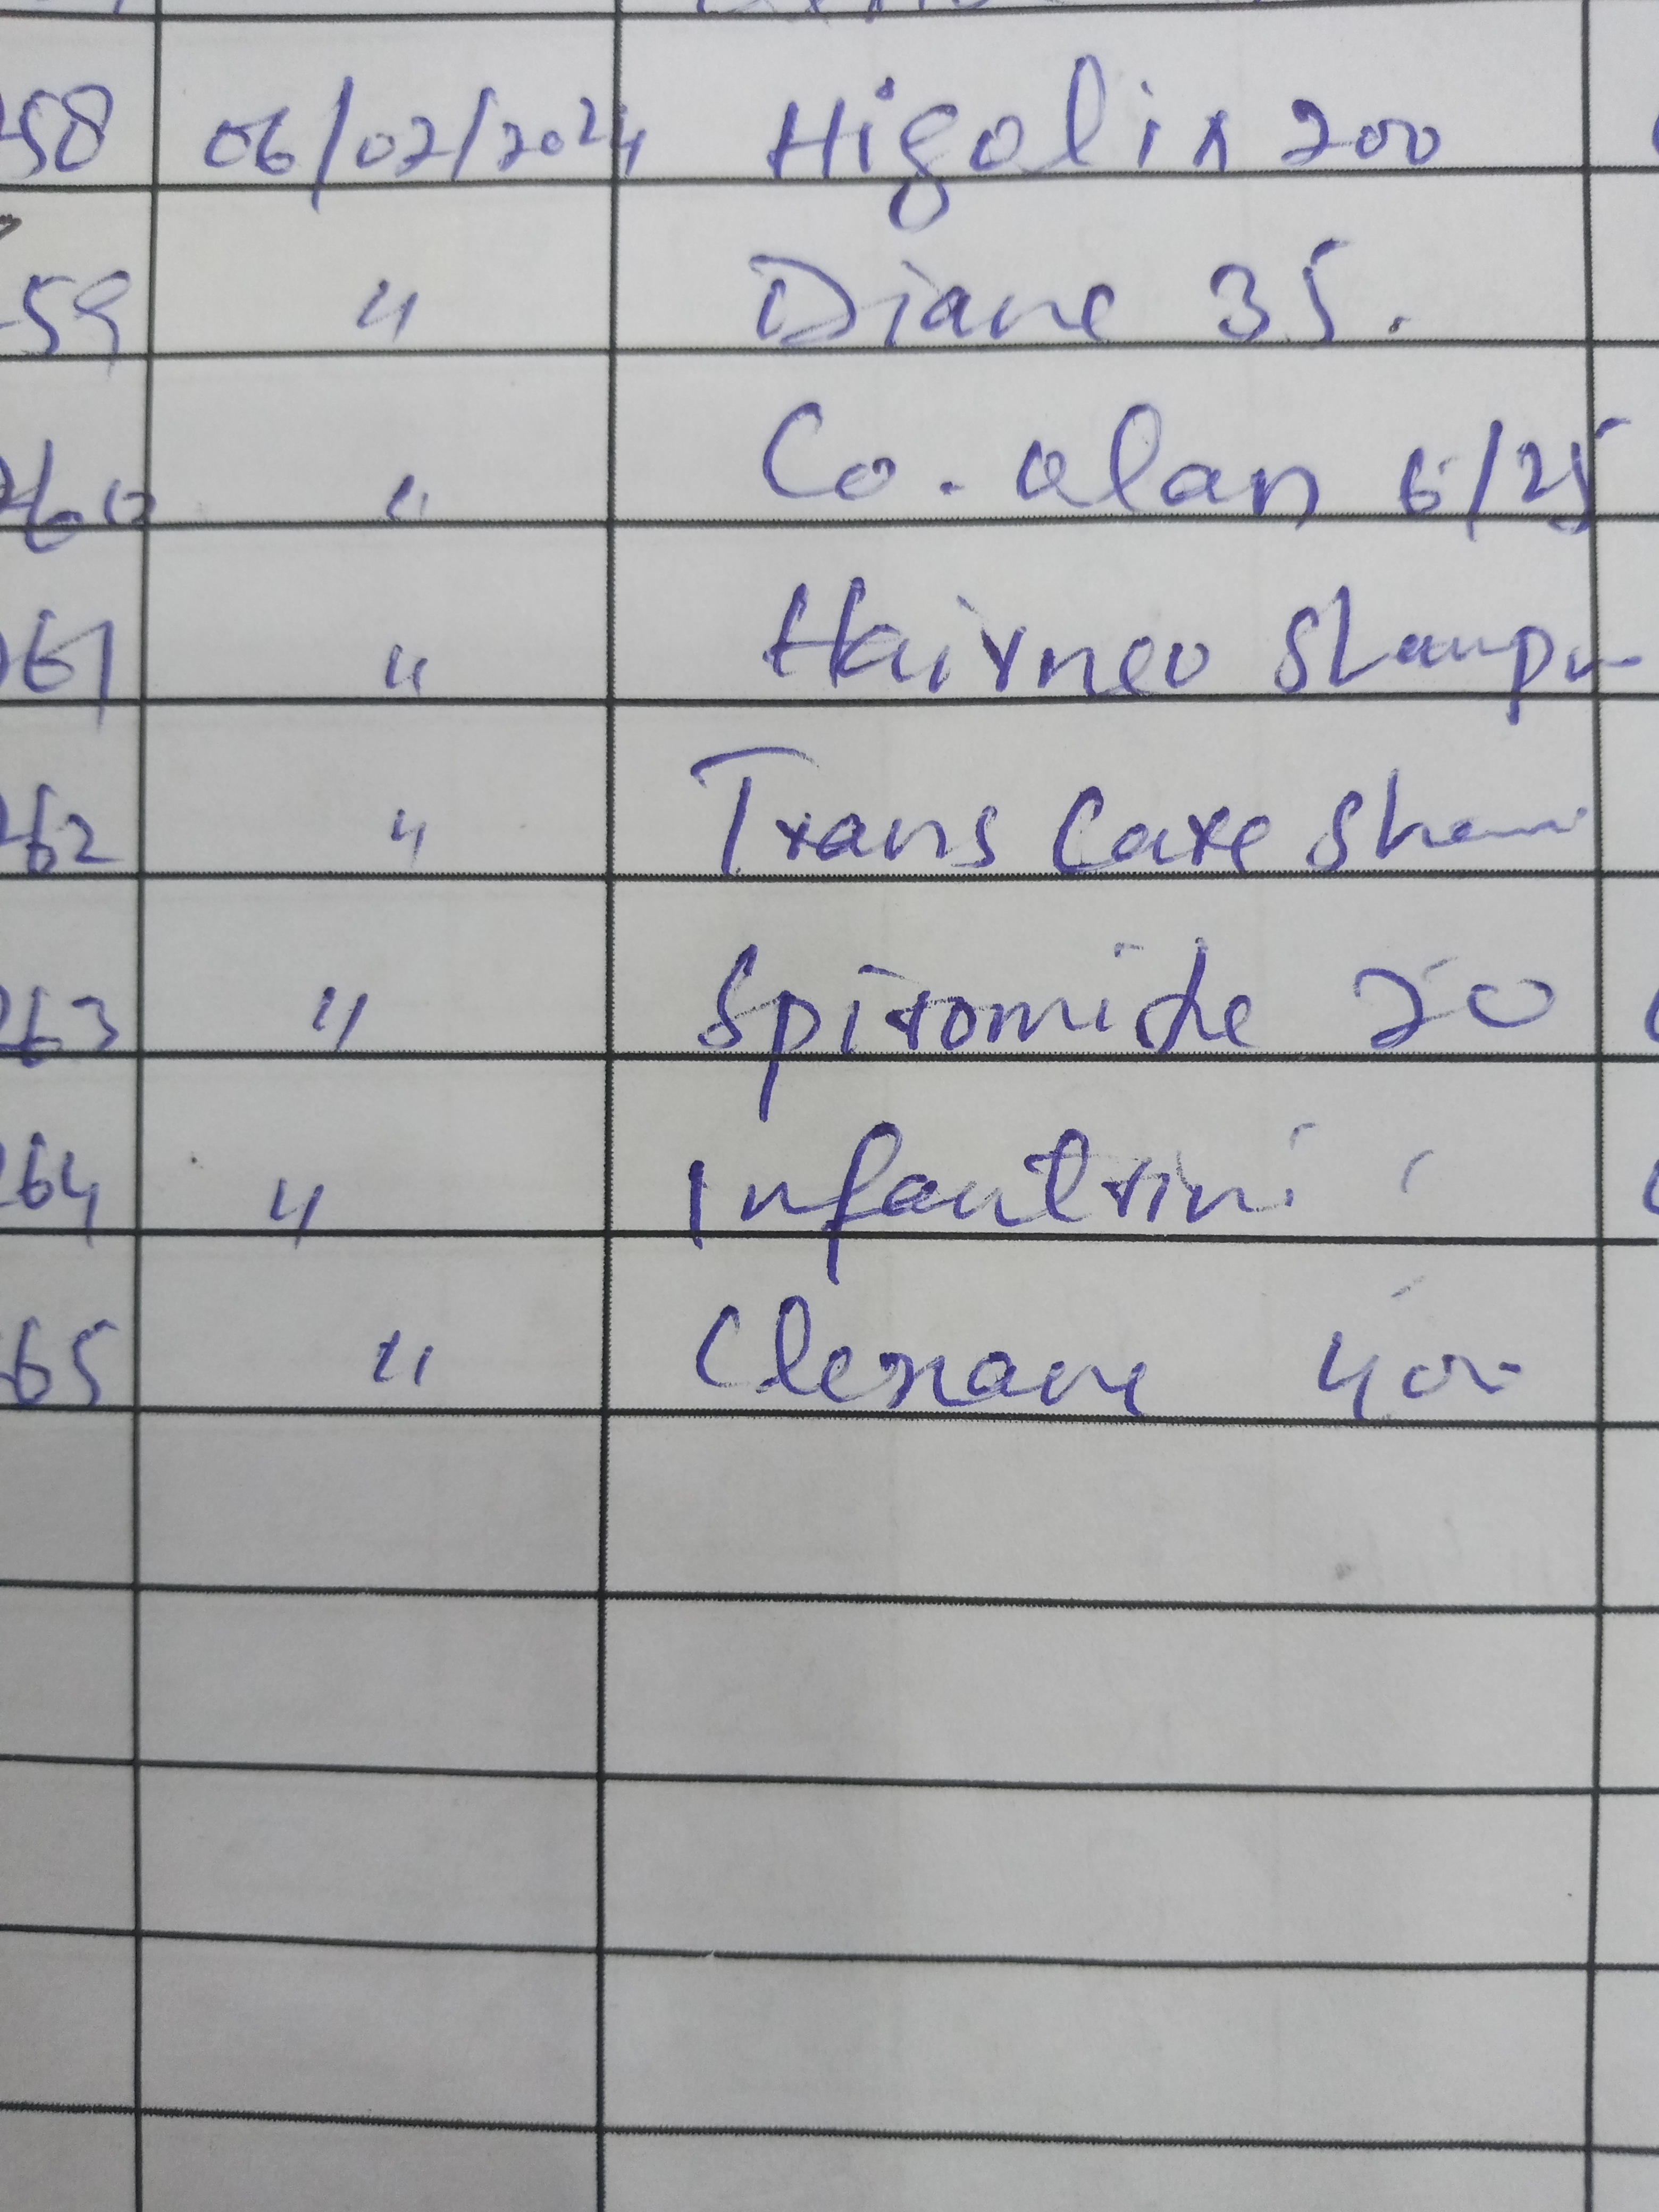 58 06/02/2024 Higolix 200
59 " Diane 35.
260 " Co. alan 5/25
261 " Hairneo Shampu
262 " Trans Care Sham
263 " Spiromide 20
264 " Infantrini
65 " Clexane 400